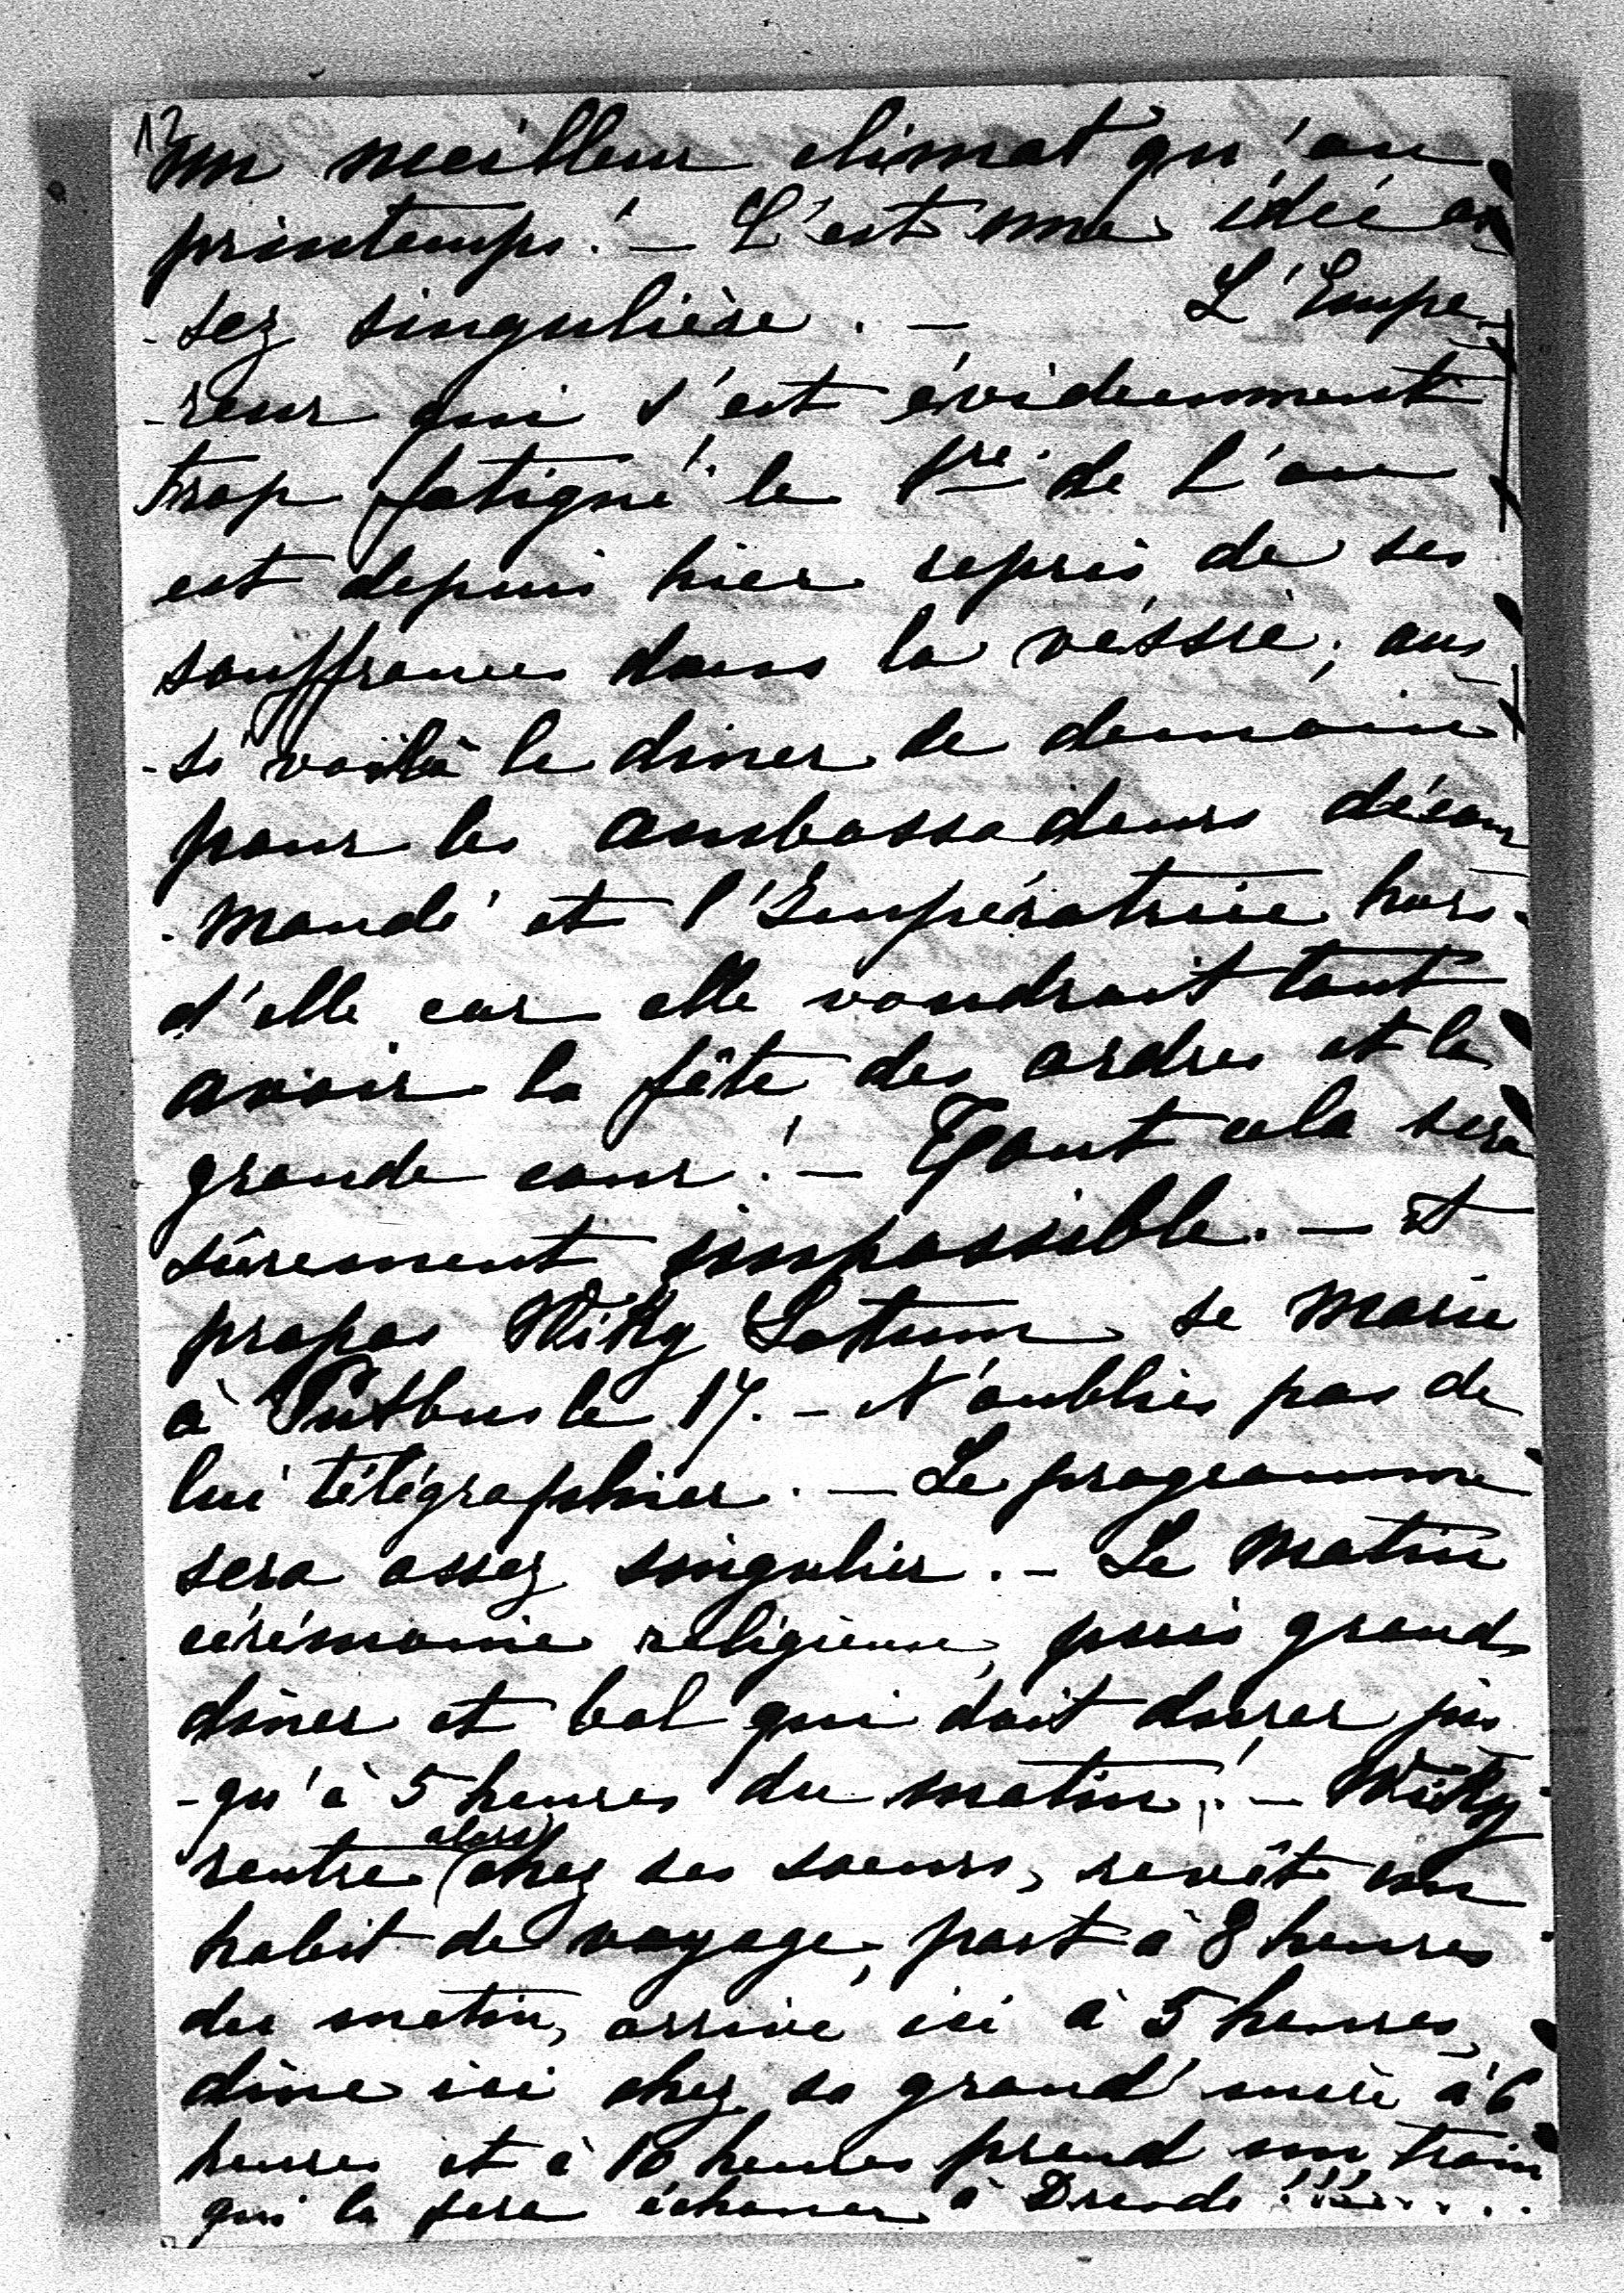 12
un meilleur climat qu'au
printemps! — C'est une idée as
-sez singulière. — L'Empe-
-reur qui s'est évidemment
trop fatigué le 1re de l'an
est depuis hier repris de ses
souffrances dans la vessie; aus
-si voilà le diner de demain
pour les ambassadeurs décom
-mandé et l'Impératrice hors
d'elle car elle voudrait tant
avoir la fête des ordres et la
grande cour! — Tout cela sera
sûrement impossible. — A
propos Wiky Lottum se marie
à Putbus le 17. — N'oublies pas de
lui télégraphier. — Le programme
sera assez singulier. — Le matin
cérémonie religieuse, puis grand
diner et bal qui doit durer jus
-qu'à 5 heures du matin! — Wiky
rentre alors chez ses soeurs, revêt un
habit de voyage, part à 8 heures
du matin, arrive ici à 5 heures,
dîne ici chez sa grand'mère à 6
heures et à 10 heures prend un train
qui la fera échouer à Dresde!!!....